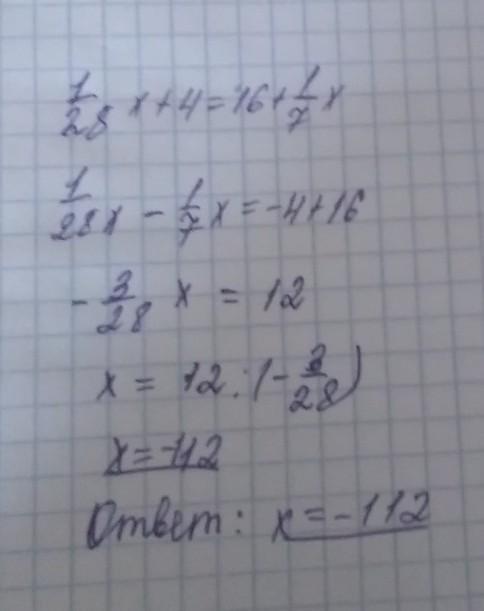 1/28 x + 4 = 16 + 1/7 x
1/28 x - 1/7 x = -4 + 16
- 3/28 x = 12
x = 12 : (- 3/28)
x = -112
Ответ: x = -112